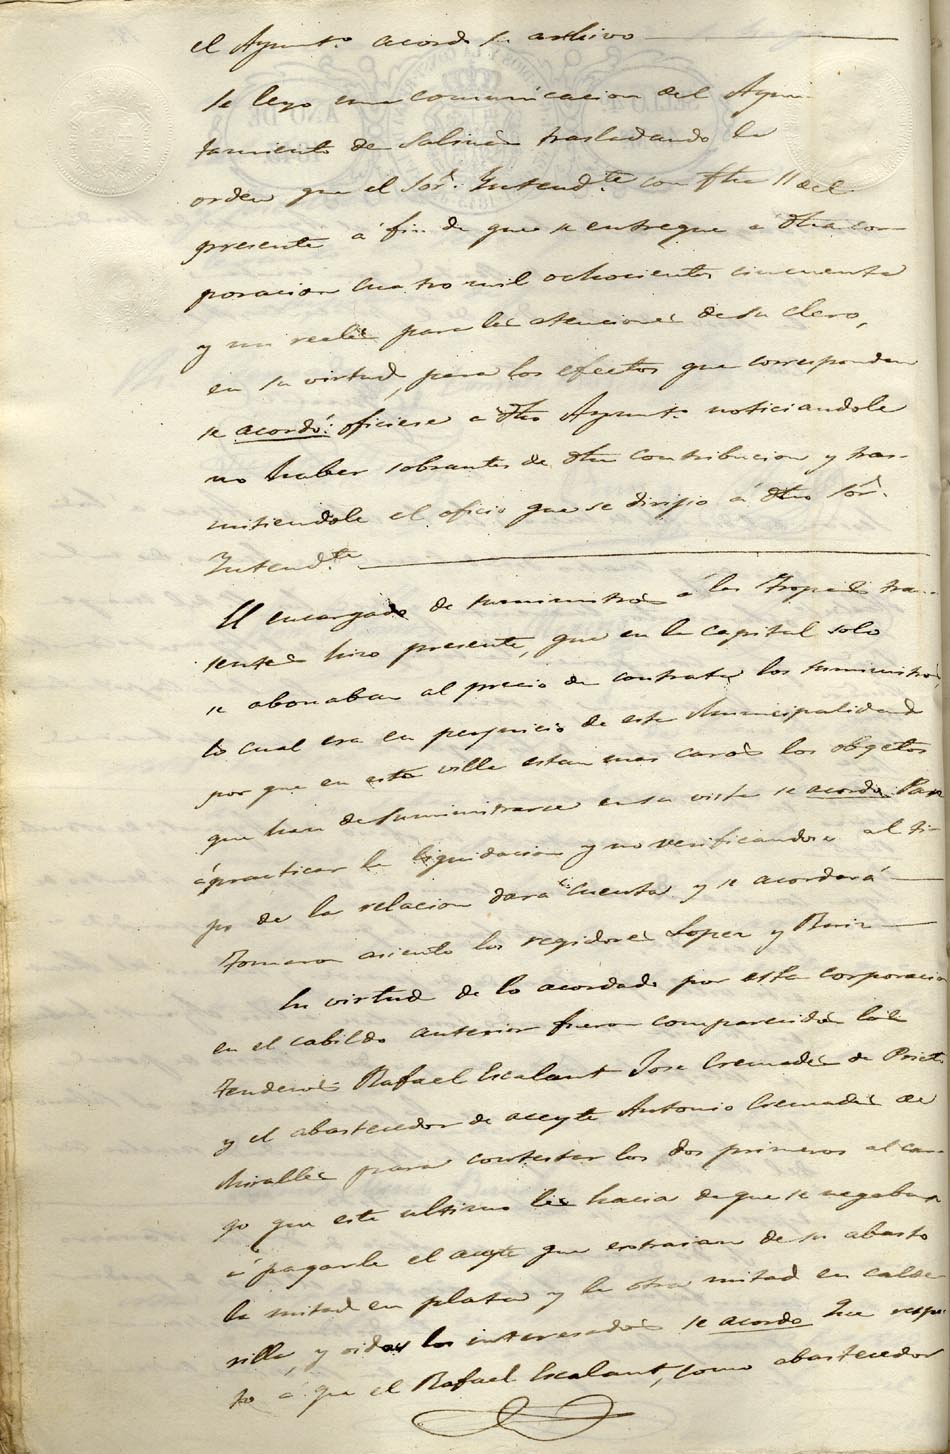 el Ayunto. acordó su archivo
Se leyo una comunicacion del Ayun-
tamiento de Salinas trasladando la
orden que el Sor. Intendte. con fha 11 del
presente á fin de que se entregue á dha cor-
poracion cuatro mil ochocientos cincuenta
y un reales para las atenciones de su clero,
en su virtud, para los efectos que correspondan
se acordó: oficiese á dho Ayunto. noticiandole
no haber sobrantes de dha contribucion y tras-
mitiendole el oficio que se dirijio á dho Sor.
Intendte.
El encargado de suministros á las Tropas tran-
seuntes hizo presente, que en la capital solo
se abonaban al precio de contrata los suministros,
lo cual era en perjuicio de esta Municipalidad
por que en esta villa estan mas caros los objetos
que han de suministrarse en su vista se acordó: Pase
á practicar la liquidacion y no verificandose al ti-
po de la relacion dará cuenta y se acordará
Tomaron asiento los regidores Lopez y Ruiz
En virtud de lo acordado por esta corporacion
en el cabildo anterior fueron comparecidos los
tenderos Rafael Escalant Jose Cremades de
y el abastecedor de aceyte Antonio Cremades de
Miralles para contestar los dos primeros al car-
go que este ultimo les hacia de que se negaban
á pagarle el aceyte que extraian de su abasto
la mitad en plata y la otra mitad en calde-
rilla, y oidos los interesados se acordó Que respec-
to á que el Rafael Escalant, como abastecedor